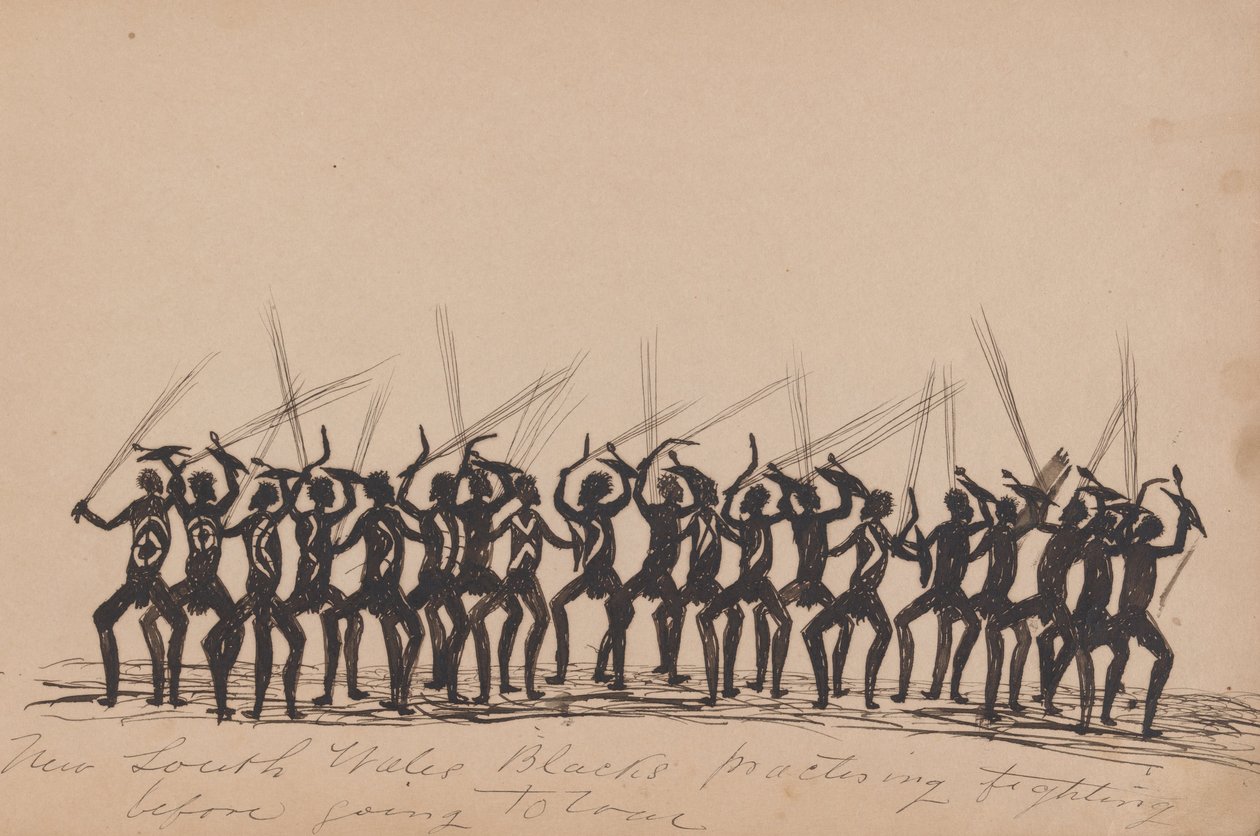 New South Wales Blacks practising fighting
before going to war